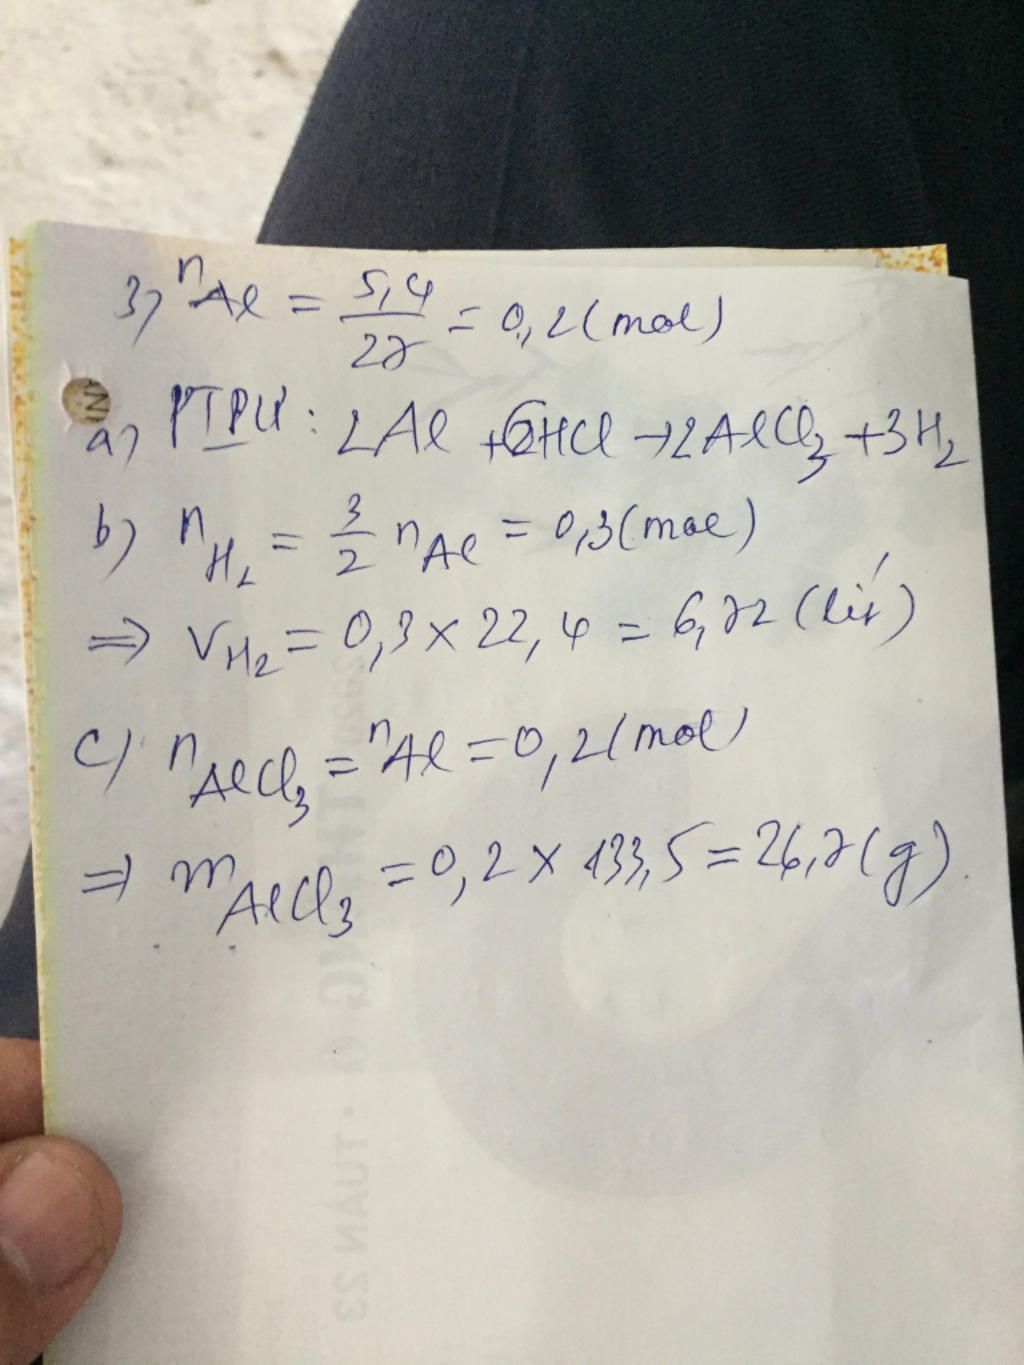 3) nAl = 5,4/27 = 0,2(mol)
a) PTPƯ: 2Al + 6HCl → 2AlCl3 + 3H2
b) nH2 = 3/2 nAl = 0,3(mol)
⇒ VH2 = 0,3 × 22,4 = 6,72 (lít)
c) nAlCl3 = nAl = 0,2(mol)
⇒ mAlCl3 = 0,2 × 133,5 = 26,7(g).
AN
TUAN 23